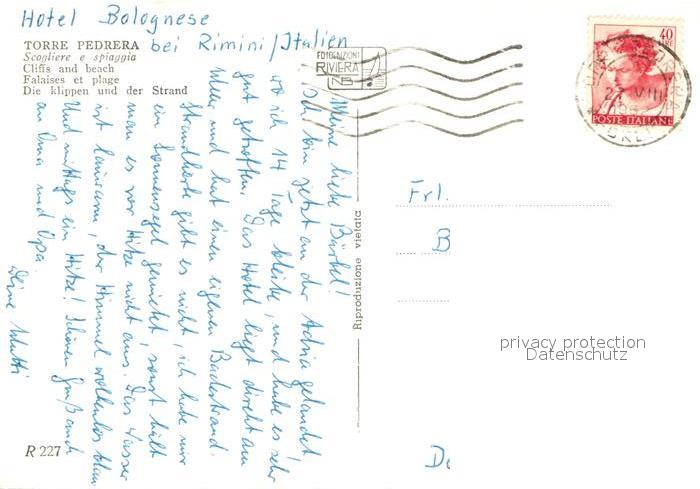 Hotel Bolognese
bei Rimini/Italien
TORRE PEDRERA
Scogliere e spiaggia
Cliffs and beach
Falaises et plage
Die klippen und der Strand
FOTOEDIZIONI
RIVIERA
40
POSTE ITALIANE
Meine liebe Bärbel!
Ich bin jetzt an der Adria gelandet,
wo ich 14 Tage bleibe, und habe es sehr
gut getroffen. Das Hotel liegt direkt am
Meer und hat einen eigenen Badestrand.
Strandkörbe gibt es nicht, ich habe mir
ein Sonnensegel gemietet, sonst hält
man es vor Hitze nicht aus. Das Wasser
ist lauwarm, der Himmel wolkenlos blau
Und mittags ein Hitze! Schönen Gruß auch
an Oma und Opa.
Deine Mutti
Riproduzione vietata
Frl.
B
privacy protection
Datenschutz
R 227